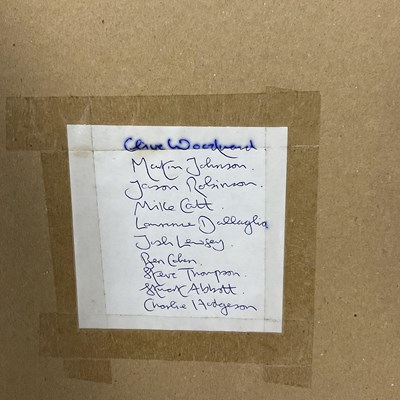 Clive Woodward
Martin Johnson.
Jason Robinson.
Mike Catt.
Lawrence Dallaglio
Josh Lewsey.
Ben Cohen.
Steve Thompson.
Stuart Abbott.
Charlie Hodgeson